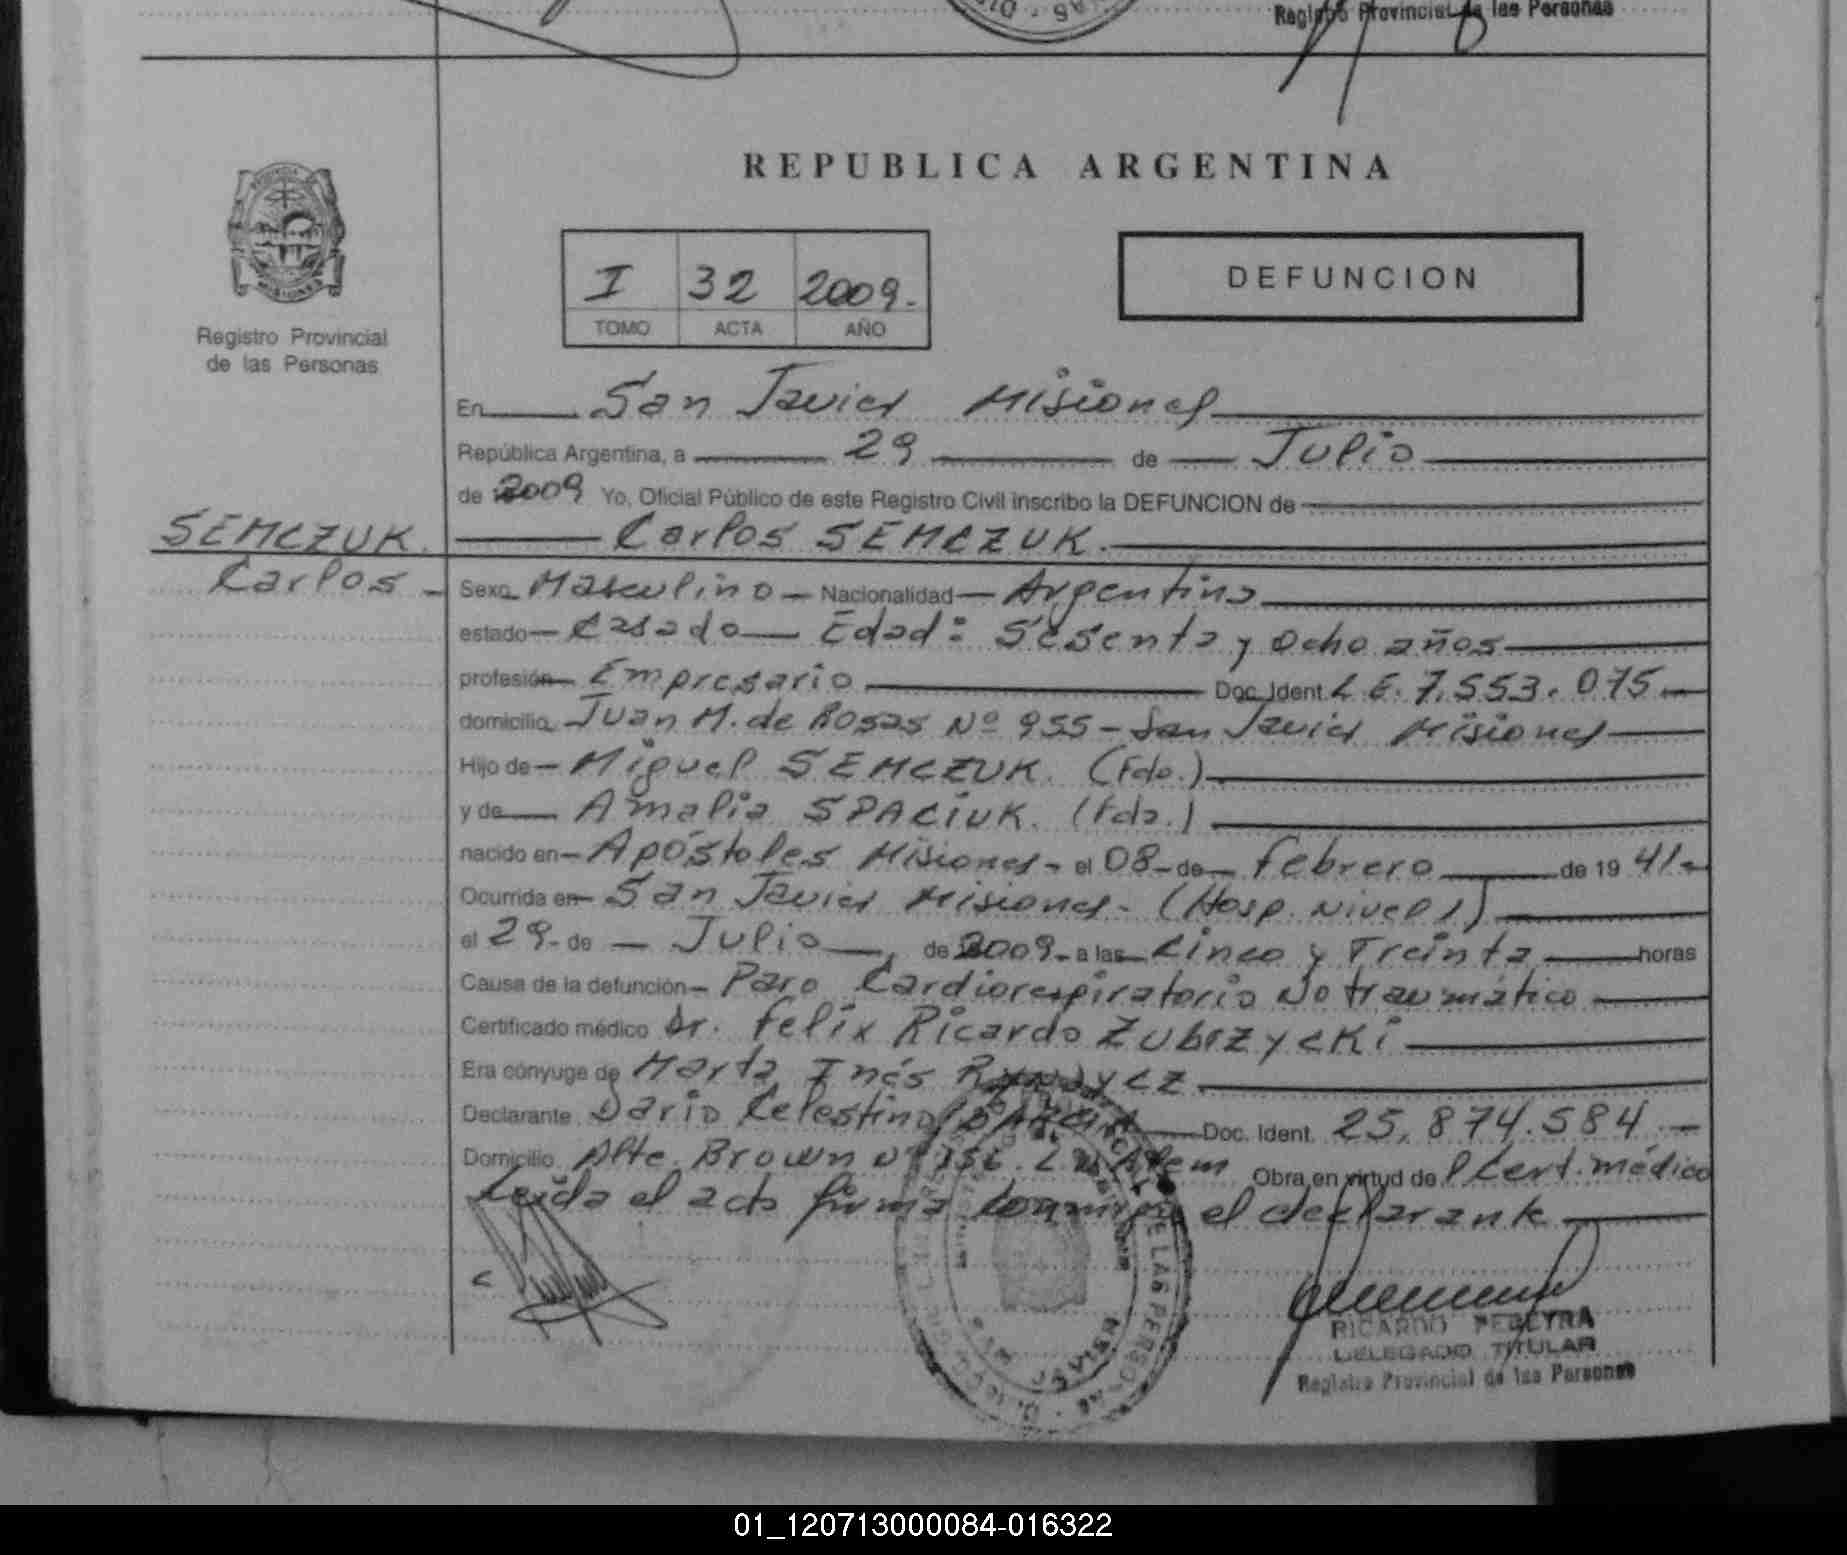 Registro Provincial de las Personas
REPUBLICA ARGENTINA
I 32 2009.-
TOMO ACTA AÑO
DEFUNCION
Registro Provincial
de las Personas
En San Javier Misiones
República Argentina, a 29 de Julio
de 2009 Yo, Oficial Público de este Registro Civil inscribo la DEFUNCION de
SEMCZUK. Carlos SEMCZUK.
Carlos - Sexo Masculino - Nacionalidad - Argentina
estado - Casado - Edad: Sesenta y Ocho años
profesión Empresario Doc. Ident. L.E. 7.553.075
domicilio Juan M. de Rosas Nº 955 - San Javier Misiones
Hijo de - Miguel SEMCZUK. (Fdo.)
y de Amalia SPACIUK. (Fda.)
nacido en - Apóstoles Misiones - el 08 - de - Febrero de 19 41.-
Ocurrida en San Javier Misiones - (Hosp. Nivel 1)
el 29 - de - Julio, de 2009 - a las Cinco y Treinta horas
Causa de la defunción - Paro Cardiorespiratorio No traumático
Certificado médico Dr. Felix Ricardo ZubrzycKi
Era cónyuge de Marta Inés
Declarante Dario Celestino Doc. Ident. 25.874.584 -
Domicilio Alte. Brown Nº L. N. Alem Obra en virtud de Cert. médico
Leída el acta firma conmigo el declarante
RICARDO PEREYRA
DELEGADO TITULAR
Registro Provincial de las Personas
01_120713000084-016322